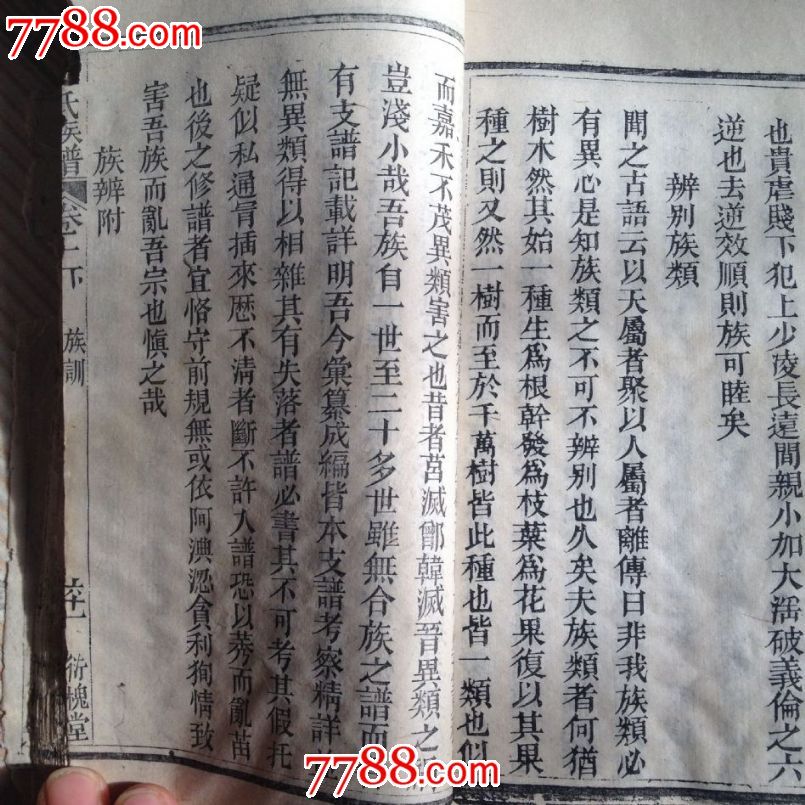 7788.com
7788.com
也貴虐賤下犯上少陵長遠間親小加大滛破義倫之六
逆也去逆效順則族可睦矣
辨別族類
聞之古語云以天屬者聚以人屬者離傳曰非我族類必
有異心是知族類之不可不辨別也久矣夫族類者何猶
樹木然其始一種生爲根幹發爲枝葉爲花果復以其果
種之則又然一樹而至於千萬樹皆此種也皆一類也似
而嘉禾不茂異類害之也昔者莒滅鄫韓滅晉異類之
豈淺小哉吾族自一世至二十多世雖無合族之譜而
有支譜記載詳明吾今彙纂成編皆本支譜考察精詳
無異類得以相雜其有失落者譜必書其不可考其假托
疑似私通冐揷來歷不清者斷不許入譜恐以莠而亂苗
也後之修譜者宜恪守前規無或依阿澳涊貪利狥情致
害吾族而亂吾宗也慎之哉
族辨附
氏族譜 卷一下 族訓 六十一 衍槐堂
7788.com
7788.com